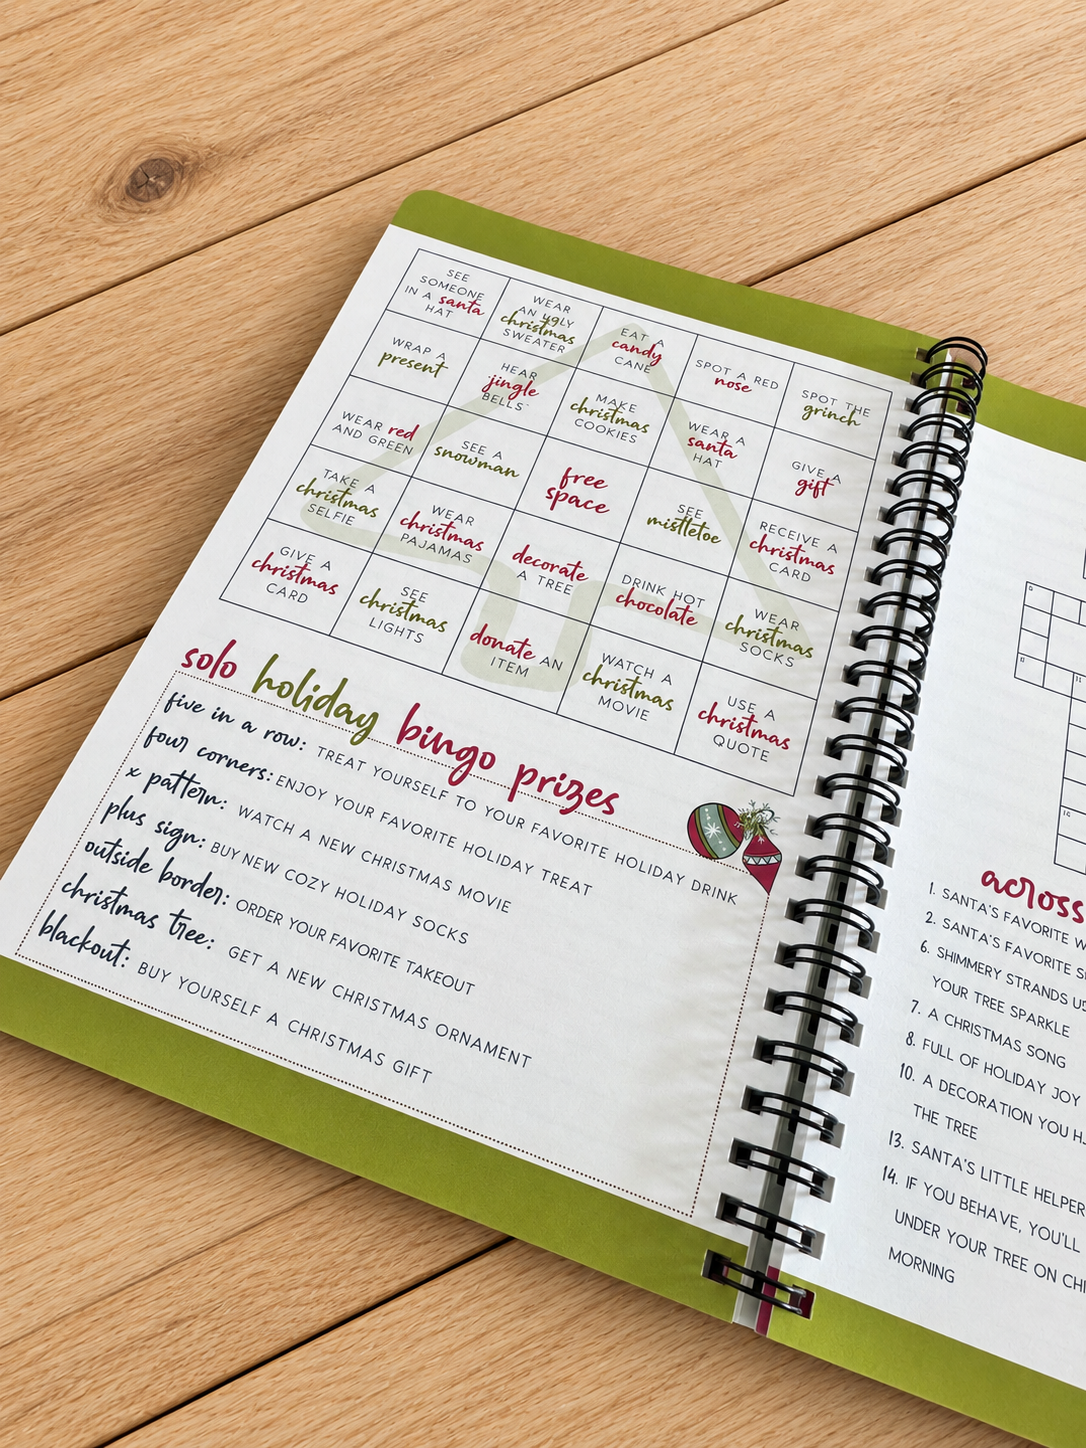 SEE
SOMEONE
IN A santa
HAT
WEAR
AN UGLY
christmas
SWEATER
EAT A
candy
CANE
SPOT A RED
nose
SPOT THE
grinch
WRAP A
present
HEAR
jingle
BELLS
MAKE
christmas
COOKIES
WEAR A
santa
HAT
GIVE A
gift
WEAR red
AND GREEN
SEE A
snowman
free
space
SEE
mistletoe
RECEIVE A
christmas
CARD
TAKE A
christmas
SELFIE
WEAR
christmas
PAJAMAS
decorate
A TREE
DRINK HOT
chocolate
WEAR
christmas
SOCKS
GIVE A
christmas
CARD
SEE
christmas
LIGHTS
donate AN
ITEM
WATCH A
christmas
MOVIE
USE A
christmas
QUOTE
solo holiday bingo prizes
five in a row: TREAT YOURSELF TO YOUR FAVORITE HOLIDAY DRINK
four corners: ENJOY YOUR FAVORITE HOLIDAY TREAT
x pattern: WATCH A NEW CHRISTMAS MOVIE
plus sign: BUY NEW COZY HOLIDAY SOCKS
outside border: ORDER YOUR FAVORITE TAKEOUT
christmas tree: GET A NEW CHRISTMAS ORNAMENT
blackout: BUY YOURSELF A CHRISTMAS GIFT
across
1. SANTA'S FAVORITE
2. SANTA'S FAVORITE
6. SHIMMERY STRANDS
YOUR TREE SPARKLE
7. A CHRISTMAS SONG
8. FULL OF HOLIDAY JOY
10. A DECORATION YOU
THE TREE
13. SANTA'S LITTLE HELPER
14. IF YOU BEHAVE, YOU'LL
UNDER YOUR TREE ON
MORNING